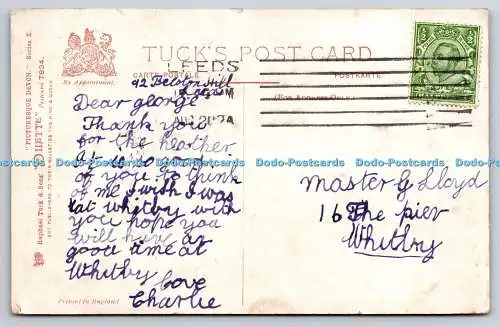 TUCK'S POST CARD
CARTE POSTALE
POSTKARTE
By Appointment.
(For Address Only.)
LEEDS
"PICTURESQUE DEVON." Series X.
"OILETTE" Postcard 7934.
Raphael Tuck & Sons'
ART PUBLISHERS TO THEIR MAJESTIES THE KING & QUEEN
92 Hill
Leeds
Dear george
Thank you
for the heather
it was good
of you to think
of me I wish I was
at whitby with
you hope you
will have a
good time at
Whitby
love
Charlie
Master G Lloyd
16 The pier
Whitby
Printed in England
Dodo-Postcards Dodo-Postcards Dodo-Postcards Dodo-Postcards Dodo-Postcards